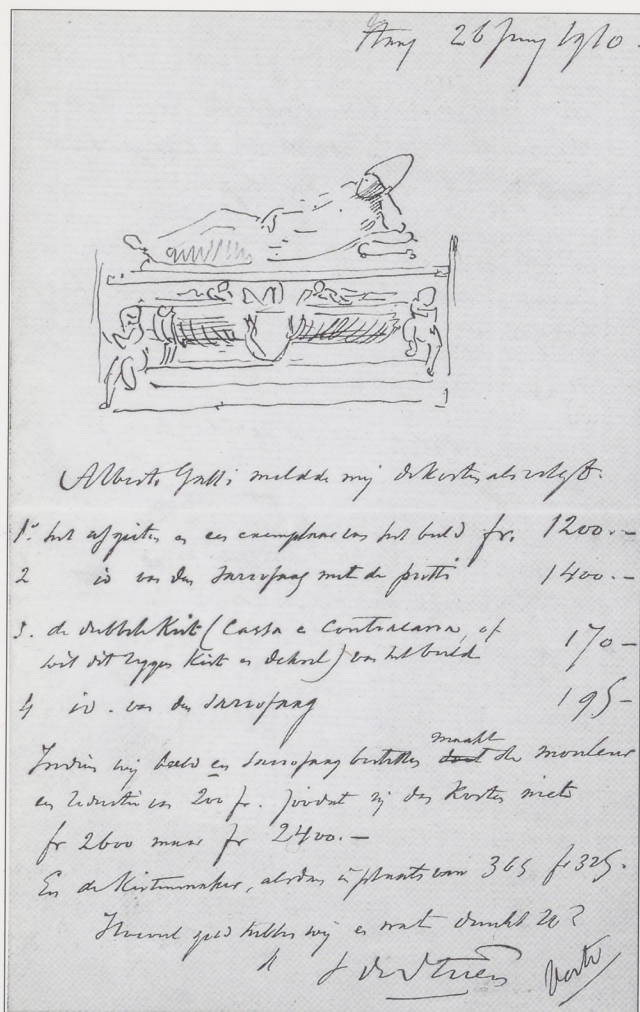 Haag 26 Juny 1910.
Alberto Galli meldde mij de kosten als volgt.
1° het afgieten en een exemplaar van het beeld fr. 1200.-
2 id van den sarcofaag met de putti 1400.-
3. de dubbele Kist (Cassa e Contracassa, of 170-
wil dit zeggen Kist en deksel) van het beeld
4 id. van den sarcofaag 195-
Indien wij beeld en sarcofaag bestellen maakt de mouleur
en reductie van 200 fr. zoodat zij dus kosten niet
fr 2600 maar fr 2400.-
En de Kistenmaker, alsdan in plaats van 365 fr 325.
Hoeveel geld hebben wij en wat dunkt
Verte